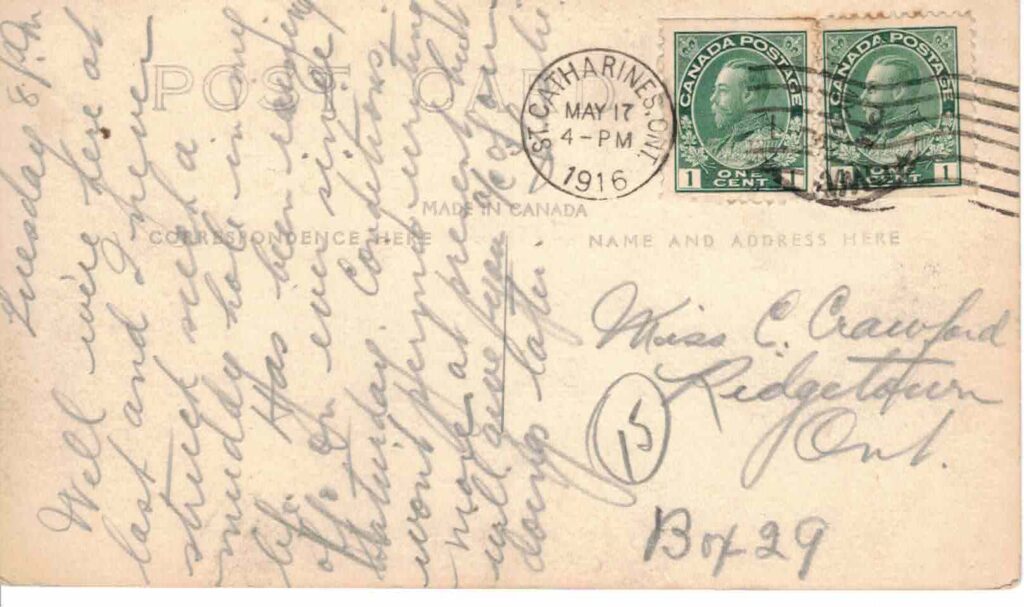 POST CARD
MADE IN CANADA
CORRESPONDENCE HERE
NAME AND ADDRESS HERE
ST. CATHARINES, ONT.
MAY 17
4-PM
1916
CANADA POSTAGE
1 ONE CENT 1
CANADA POSTAGE
ONE CENT 1
Tuesday 8 P.M
Well we're here at
last and I never
struck such a
muddy hole in my
life. Has been raining
off on ever since
Saturday. Conditions
wont permit writing
more at present but
will give you of our
doings later
Miss C. Crawford
Ridgetown
Ont.
15
Box 29